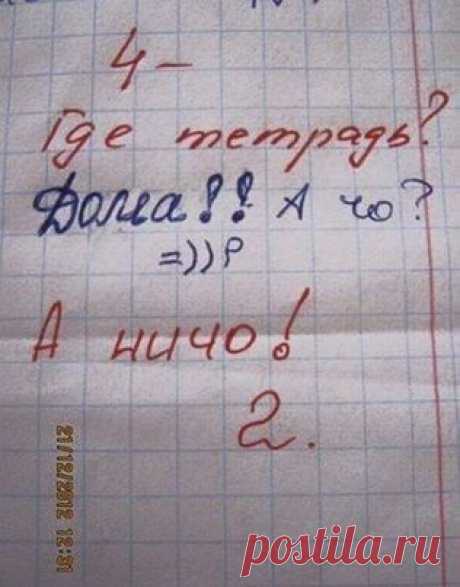 4-
Где тетрадь?
Дома!! А чо?
=))P
А ничо!
2.
21/12/2012 12:31
postila.ru